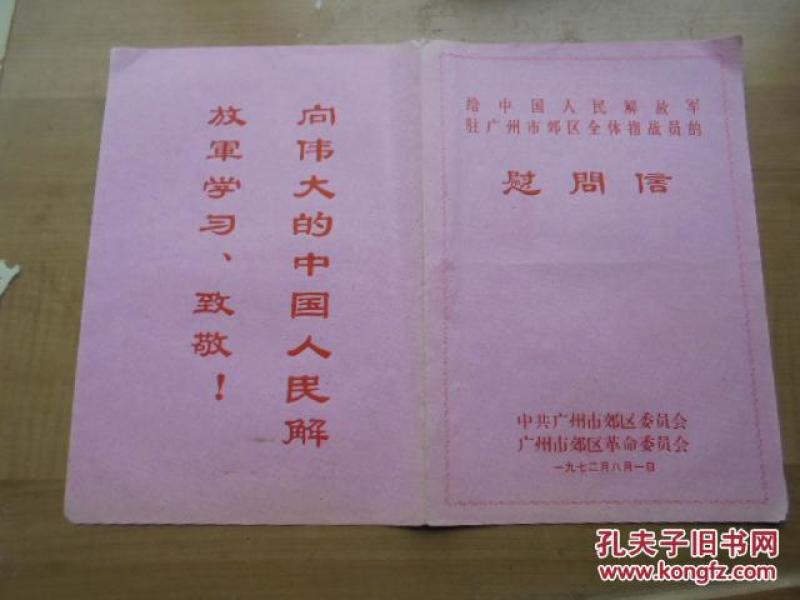 向伟大的中国人民解
放軍学习、致敬！
给中国人民解放军
驻广州市郊区全体指战员的
慰問信
中共广州市郊区委员会
广州市郊区革命委员会
一九七二年八月一日
孔夫子旧书网
www.kongfz.com